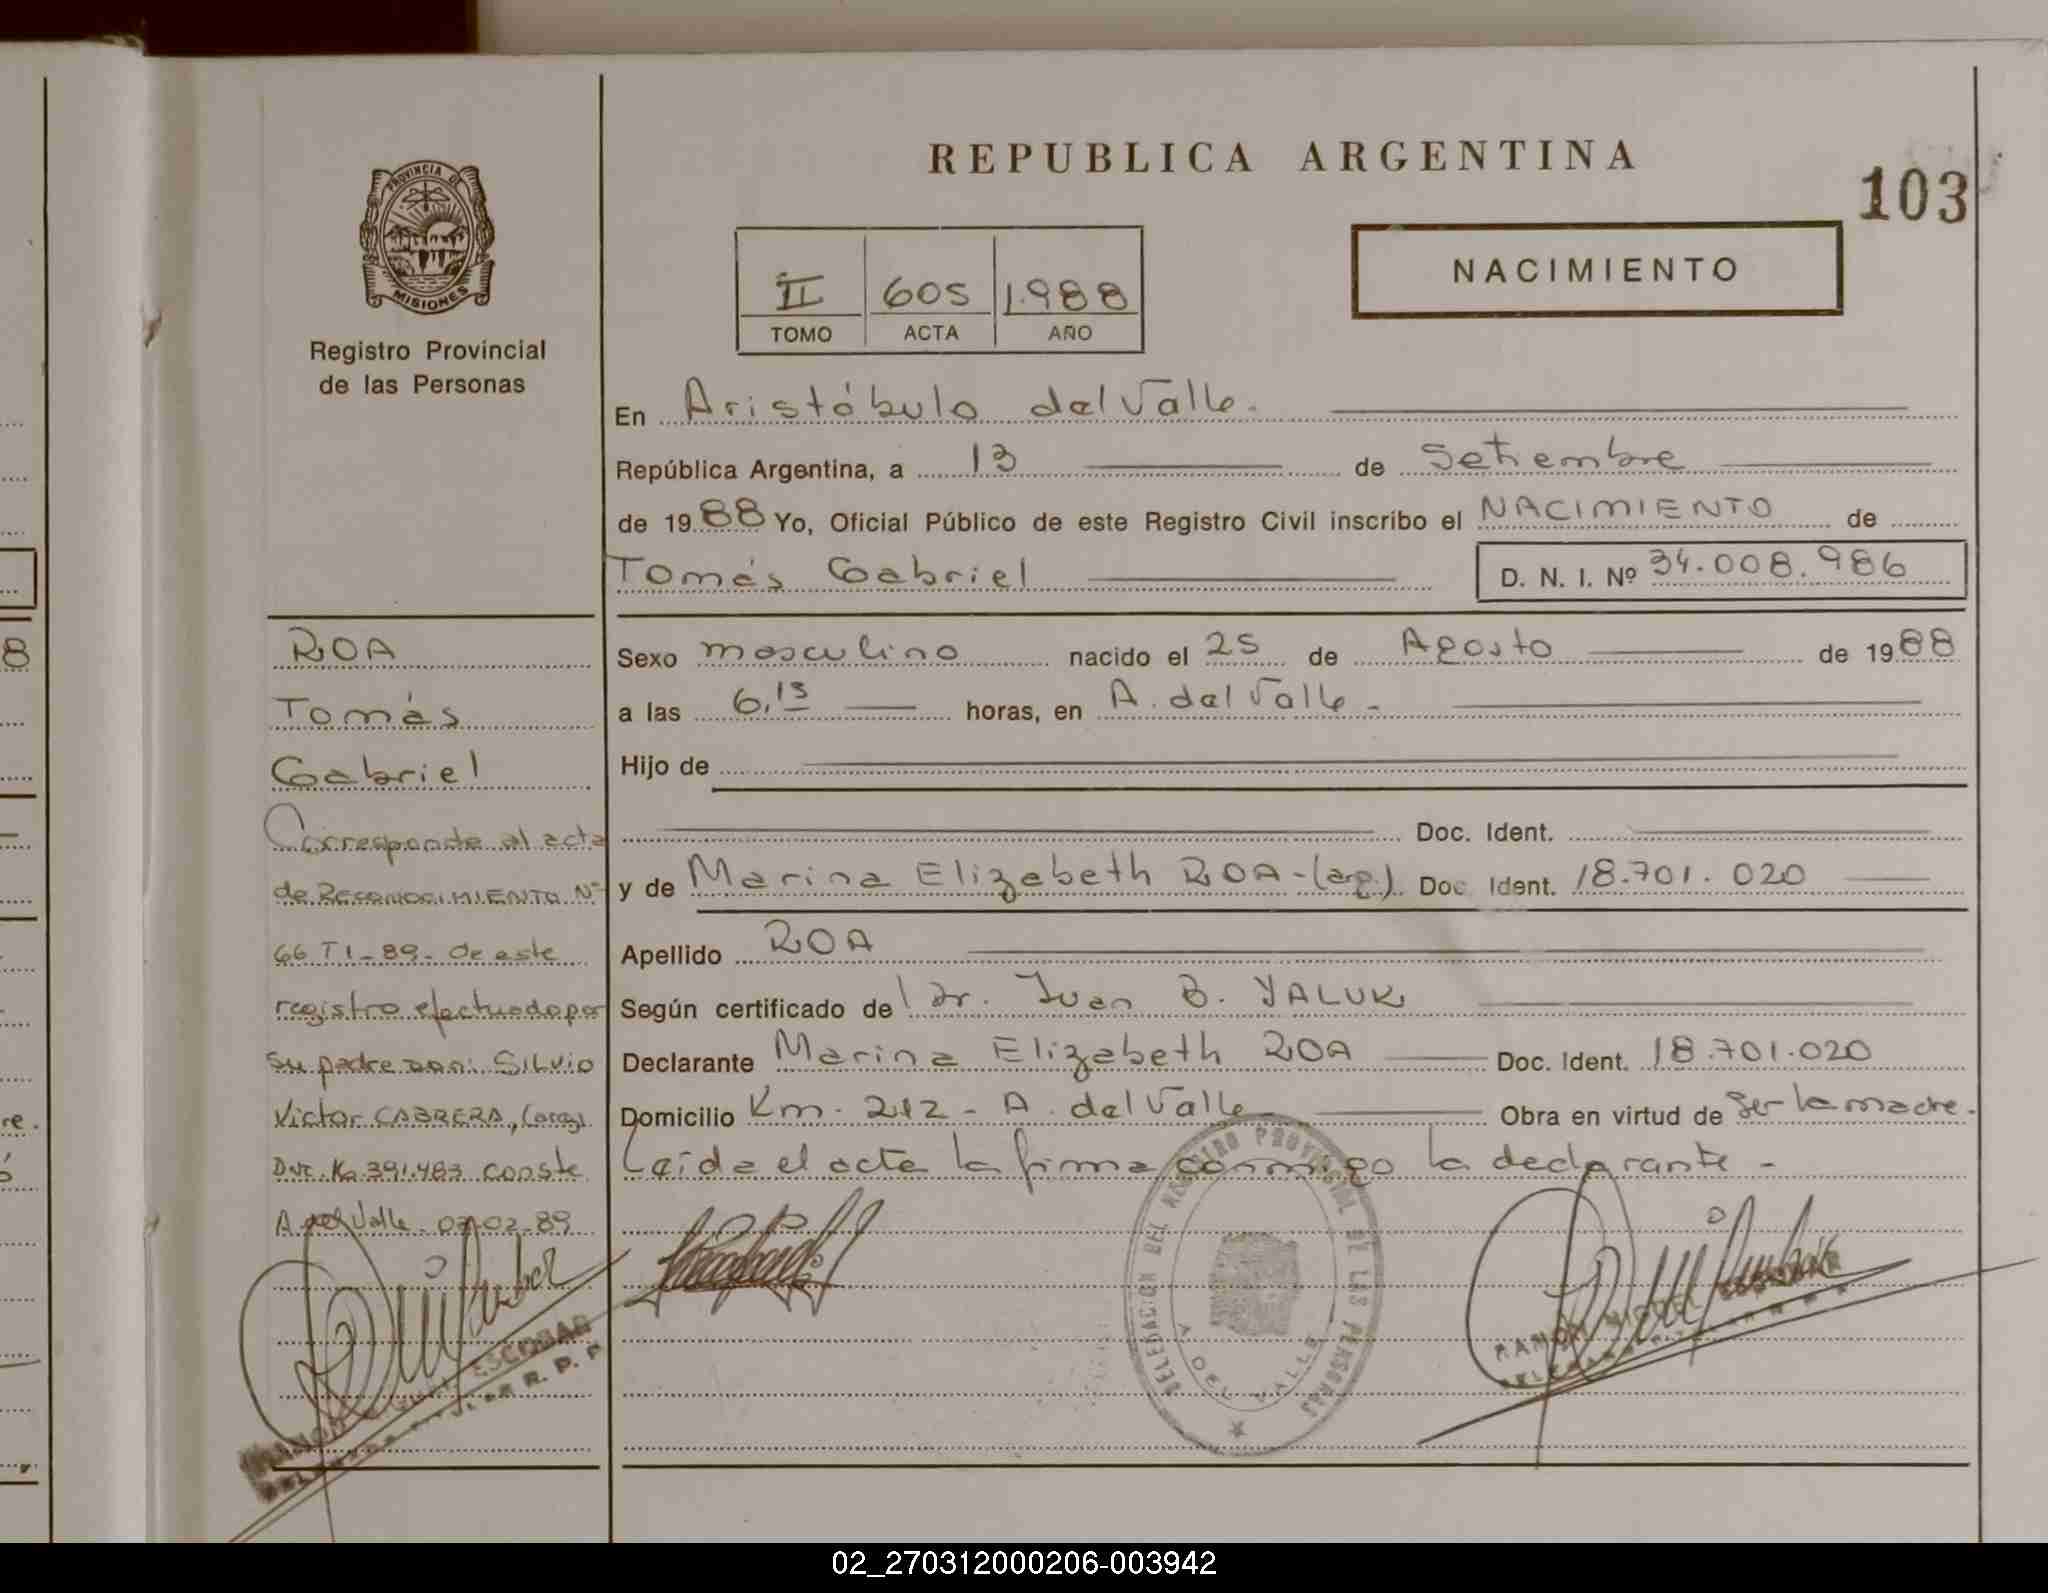 REPUBLICA ARGENTINA
103
PROVINCIA DE
MISIONES
Registro Provincial
de las Personas
II 605 1.988
TOMO ACTA AÑO
NACIMIENTO
En Aristóbulo del Valle.
República Argentina, a 13 de Setiembre
de 1988 Yo, Oficial Público de este Registro Civil inscribo el NACIMIENTO de
Tomás Gabriel D. N. I. Nº 34.008.986
Sexo masculino nacido el 25 de Agosto de 1988
a las 6,15 horas, en A. del Valle -
Hijo de
Doc. Ident.
y de Marina Elizabeth ROA - (arg.) Doc. Ident. 18.701.020
Apellido ROA
Según certificado de Dr. Juan B. YALUK
Declarante Marina Elizabeth ROA Doc. Ident. 18.701.020
Domicilio Km. 212 - A. del Valle Obra en virtud de ser la madre.
Leída el acta la firma conmigo la declarante -
ROA
Tomás
Gabriel
Corresponde al acta
de RECONOCIMIENTO Nº
66 T I - 89 - de este
registro efectuado por
su padre don: SILVIO
Victor CABRERA, (arg).
391.483 conste
A. del Valle - 07-02-89
DELEGACION DEL REGISTRO PROVINCIAL DE LAS PERSONAS
A DEL VALLE
RAMON MIGUEL ESCOBAR
ESCOBAR
R. P. P.
02_270312000206-003942